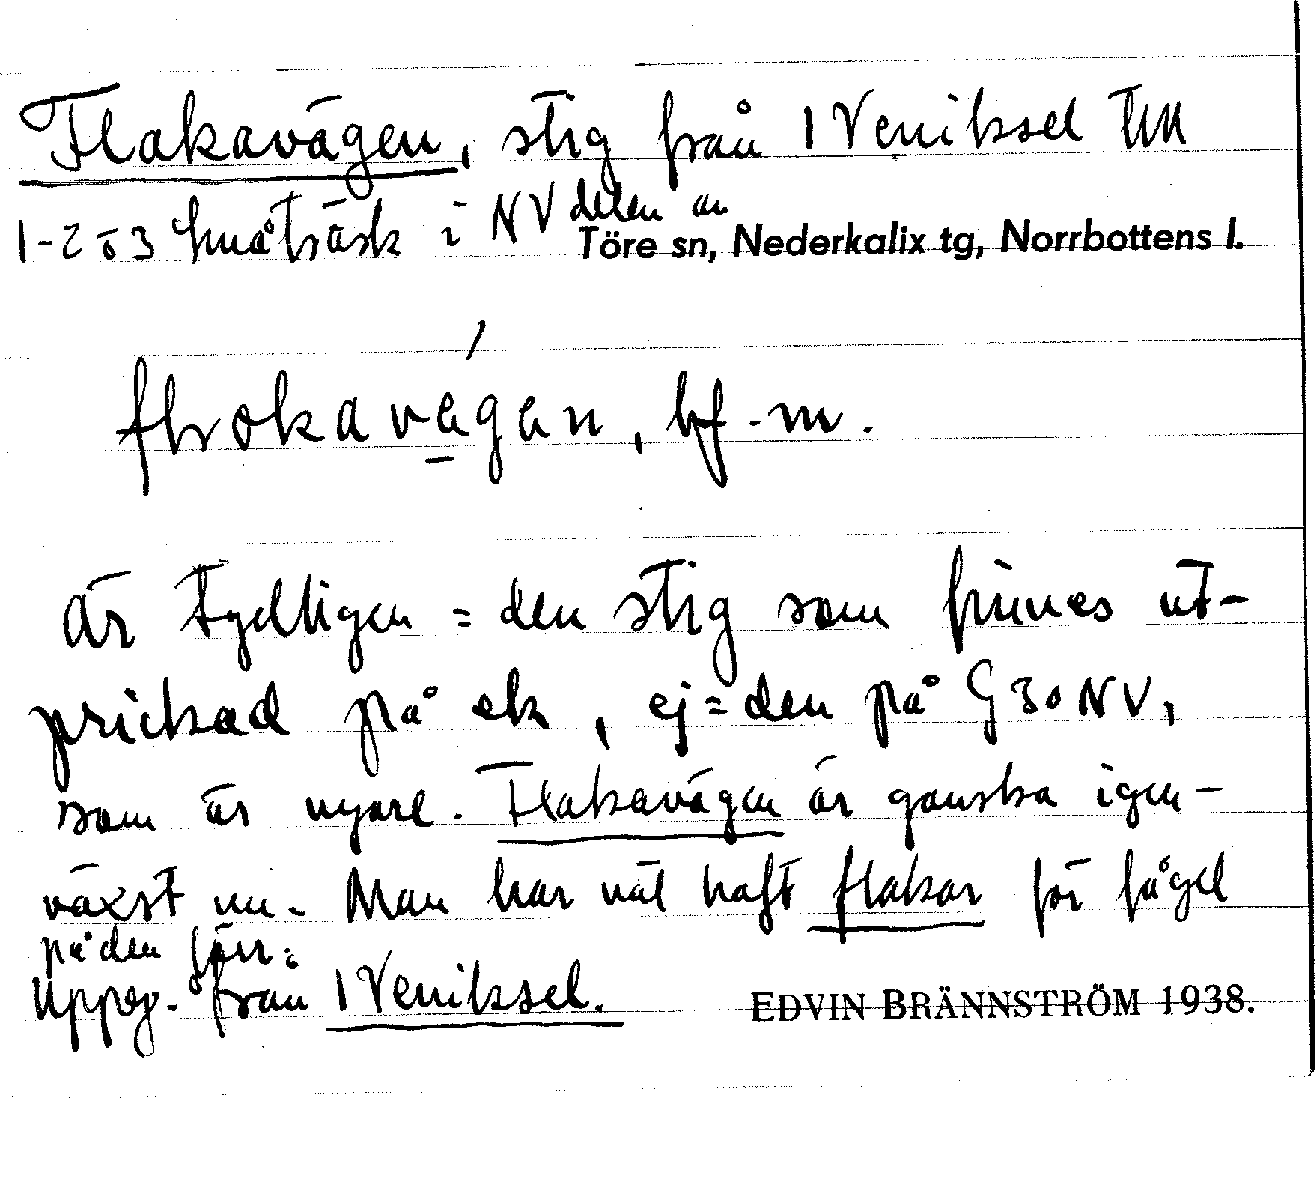 Flakavägen, stig från 1 Veniksel till
1-2 o 3 Småträsk i NV delen av
Töre sn, Nederkalix tg, Norrbottens l.
bf. m.
är tydligen = den stig som finnes ut-
prickad på ek, ej = den på G 30 NV,
som är nyare. Flakavägen är ganska igen-
växst nu. Man har väl haft flakar för fågel
på den förr.
Uppg. från 1 Veniksel.
EDVIN BRÄNNSTRÖM 1938.